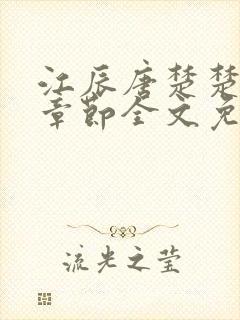 江辰唐楚楚
章节全文免
流光之莹